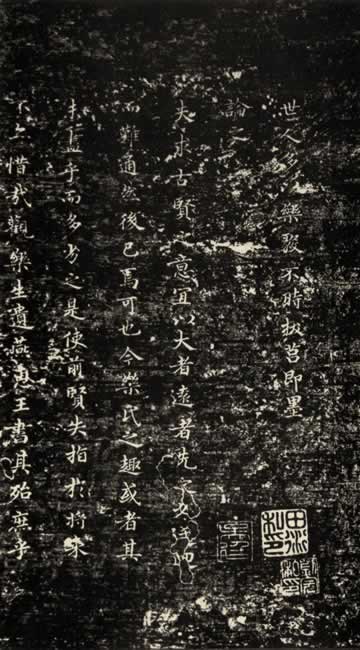 世人多以樂毅不時拔莒即墨
論之
夫求古賢之意宜以大者遠者先之必迂迴
而難通然後已焉可也今樂氏之趣或者其
未盡乎而多劣之是使前賢失指於將来
不亦惜哉觀樂生遺燕惠王書其殆庶乎